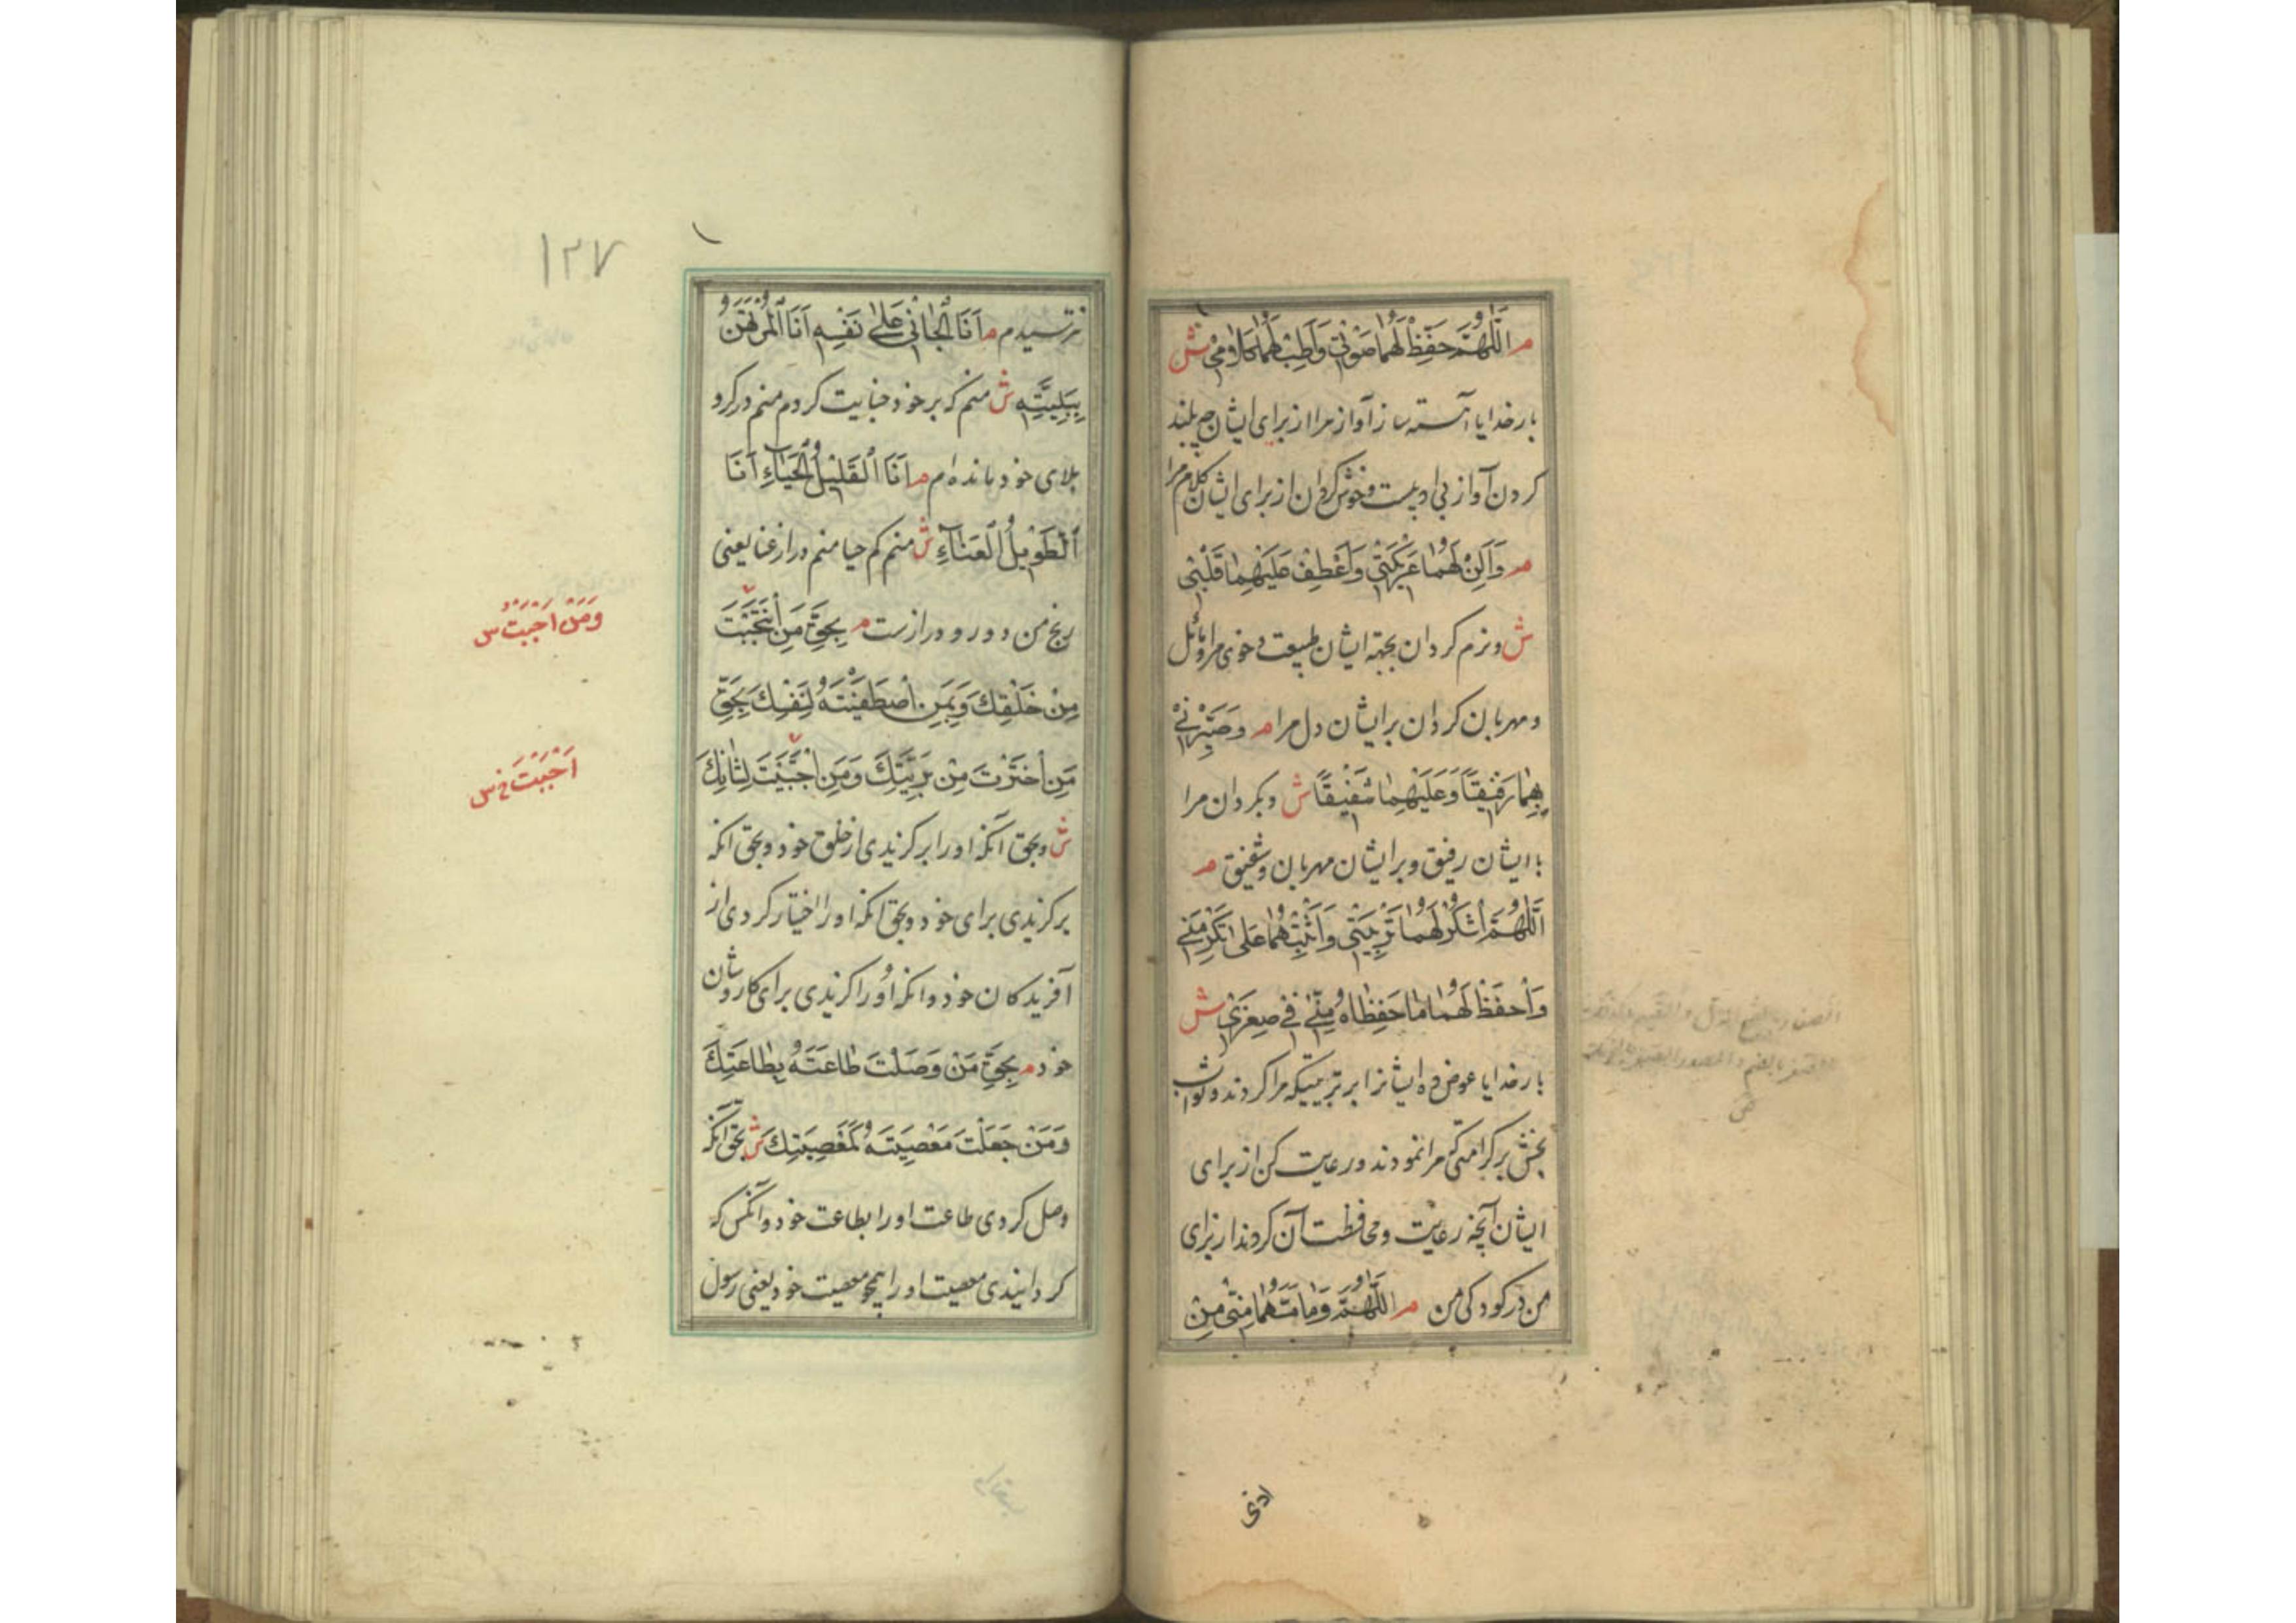 م اللَّهُمَّ خَفِّضْ لَهُمَا صَوْتِي وَأَطِبْ لَهُمَا كَلَامِي ش
بار خدایا آهسته ساز آواز مرا از برای ایشان چه بلند
کردن آواز بی ادبیست و خوش کردان از برای ایشان کلام مرا
م وَأَلِنْ لَهُمَا عَرِيكَتِي وَاعْطِفْ عَلَيْهِمَا قَلْبِي
ش و نرم کردان بجهة ایشان طبیعت و خوی مرا و مائل
و مهربان کردان بر ایشان دل مرا م وَصَيِّرْنِي
بِهِمَا رَفِيقًا وَعَلَيْهِمَا شَفِيقًا ش و بکردان مرا
با ایشان رفیق و بر ایشان مهربان و شفیق م
اَللَّهُمَّ اشْكُرْ لَهُمَا تَرْبِيَتِي وَأَثِبْهُمَا عَلَى تَكْرِمَتِي
وَاحْفَظْ لَهُمَا مَا حَفِظَاهُ مِنِّي فِي صِغَرِي ش
بار خدایا عوض ده ایشانرا بر تربیتیکه مرا کردند و ثواب
بخش بر کرامتی که مرا نمودند و رعایت کن از برای
ایشان آنچه رعایت و محافظت آن کردند از برای
من در کودکی من م اللَّهُمَّ وَمَا مَسَّهُمَا مِنِّي مِنْ
اذی
۱۲۷
نترسیدم م أَنَا الْجَانِي عَلَى نَفْسِهِ أَنَا الْمُرْتَهَنُ
بِبَلِيَّتِهِ ش منم که بر خود جنایت کردم منم در کرو
بلای خود مانده ام م أَنَا الْقَلِيلُ الْحَيَاءِ أَنَا
الطَّوِيلُ الْعَنَاءِ ش منم کم حیا منم دراز عنا یعنی
رنج من دور و درازست م بِحَقِّ مَنِ انْتَجَبْتَ
وَمَنْ اَحْبَبْتَ س
مِنْ خَلْقِكَ وَبِمَنِ اصْطَفَيْتَهُ لِنَفْسِكَ بِحَقِّ
مَنِ اخْتَرْتَ مِنْ بَرِيَّتِكَ وَمَنِ اجْتَبَيْتَ لِشَأْنِكَ
اَحْبَبْتَ خ س
ش و بحق آنکه او را برکزیدی از خلق خود و بحق انکه
برکزیدی برای خود و بحق انکه او را اختیار کردی از
آفریدکان خود و انکه او را کزیدی برای کار و شان
خود م بِحَقِّ مَنْ وَصَلْتَ طَاعَتَهُ بِطَاعَتِكَ
وَمَنْ جَعَلْتَ مَعْصِيَتَهُ كَمَعْصِيَتِكَ ش بحق آنکه
وصل کردی طاعت او را بطاعت خود و آنکس که
کردانیدی معصیت او را همچو معصیت خود یعنی رسول